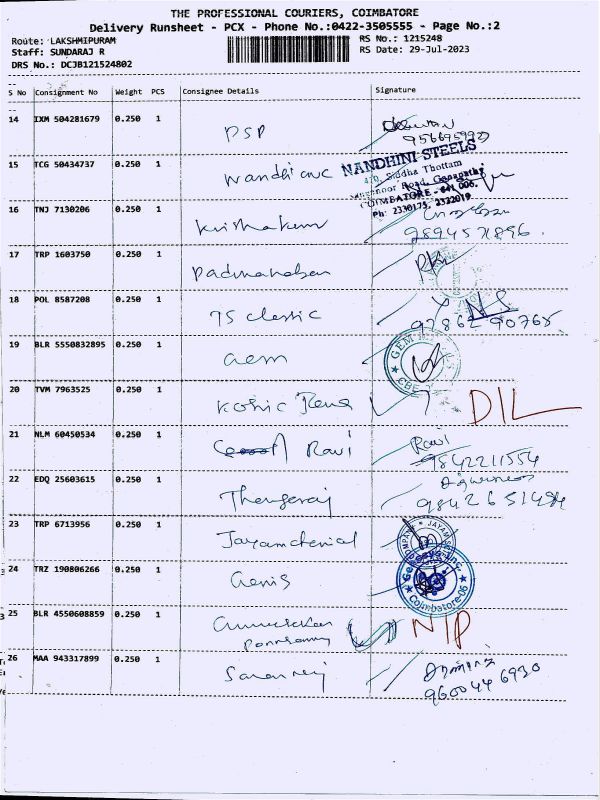 THE PROFESSIONAL COURIERS, COIMBATORE
Delivery Runsheet - PCX - Phone No.:0422-3505555 - Page No.:2
Route: LAKSHMIPURAM
RS No.: 1215248
Staff: SUNDARAJ R
RS Date: 29-Jul-2023
DRS No.: DCJB121524802
S No Consignment No Weight PCS Consignee Details Signature
14 IXM 504281679 0.250 1 PSP
9566959929
15 TCG 50434737 0.250 1
NANDHINI STEELS
4/0, Siddha Thottam
Road, Ganapathy
COIMBATORE - 641 006.
Ph: 2330175, 2322019
16 TNJ 7130206 0.250 1 Krishakem
9894571896
17 TRP 1603750 0.250 1 Padmanaban
18 POL 8587208 0.250 1 TS Classic
97862 90765
19 BLR 5550832895 0.250 1 Gem
GEM
CBE
20 TVM 7963525 0.250 1 DIL
21 NLM 60450534 0.250 1 Ravi Ravi
9842211554
22 EDQ 25603615 0.250 1 Thangaraj
9842651484
23 TRP 6713956 0.250 1 Jayamchemical
JAYAM
24 TRZ 190806266 0.250 1 Genis
Coimbatore-06
25 BLR 4550608859 0.250 1 N/P
Ponnsamy
26 MAA 943317899 0.250 1 Saranraj
960044 6930